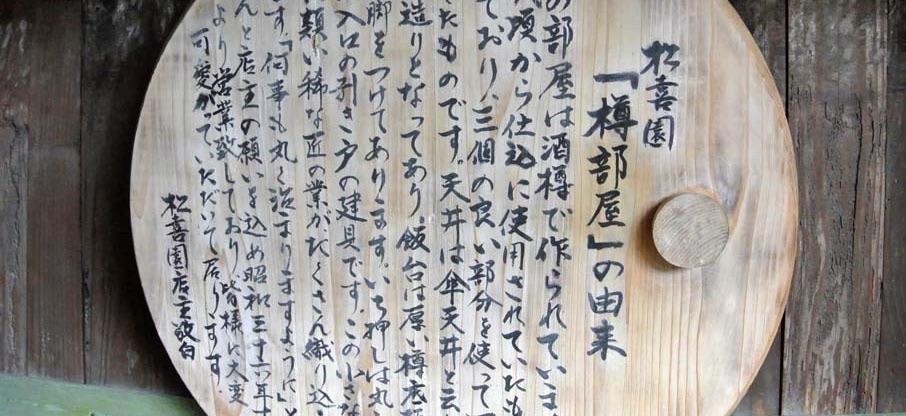 松喜園
「樽部屋」の由来
の部屋は酒樽で作られています
頃から仕込に使用されていたも
ており、三個の良い部分を使って
たものです。天井は傘天井と云
造りとなってあり飯台は厚い樽底
脚をつけてあります。いち押しは丸
入口の引き戸の建具です。この小さな
類い稀な匠の業がたくさん織り込
す。「何事も丸く治まりますように」と
んと店主の願いを込め昭和三十六年
より営業致しており、皆様に大変
可愛がっていただいて居ります
松喜園店主敬白